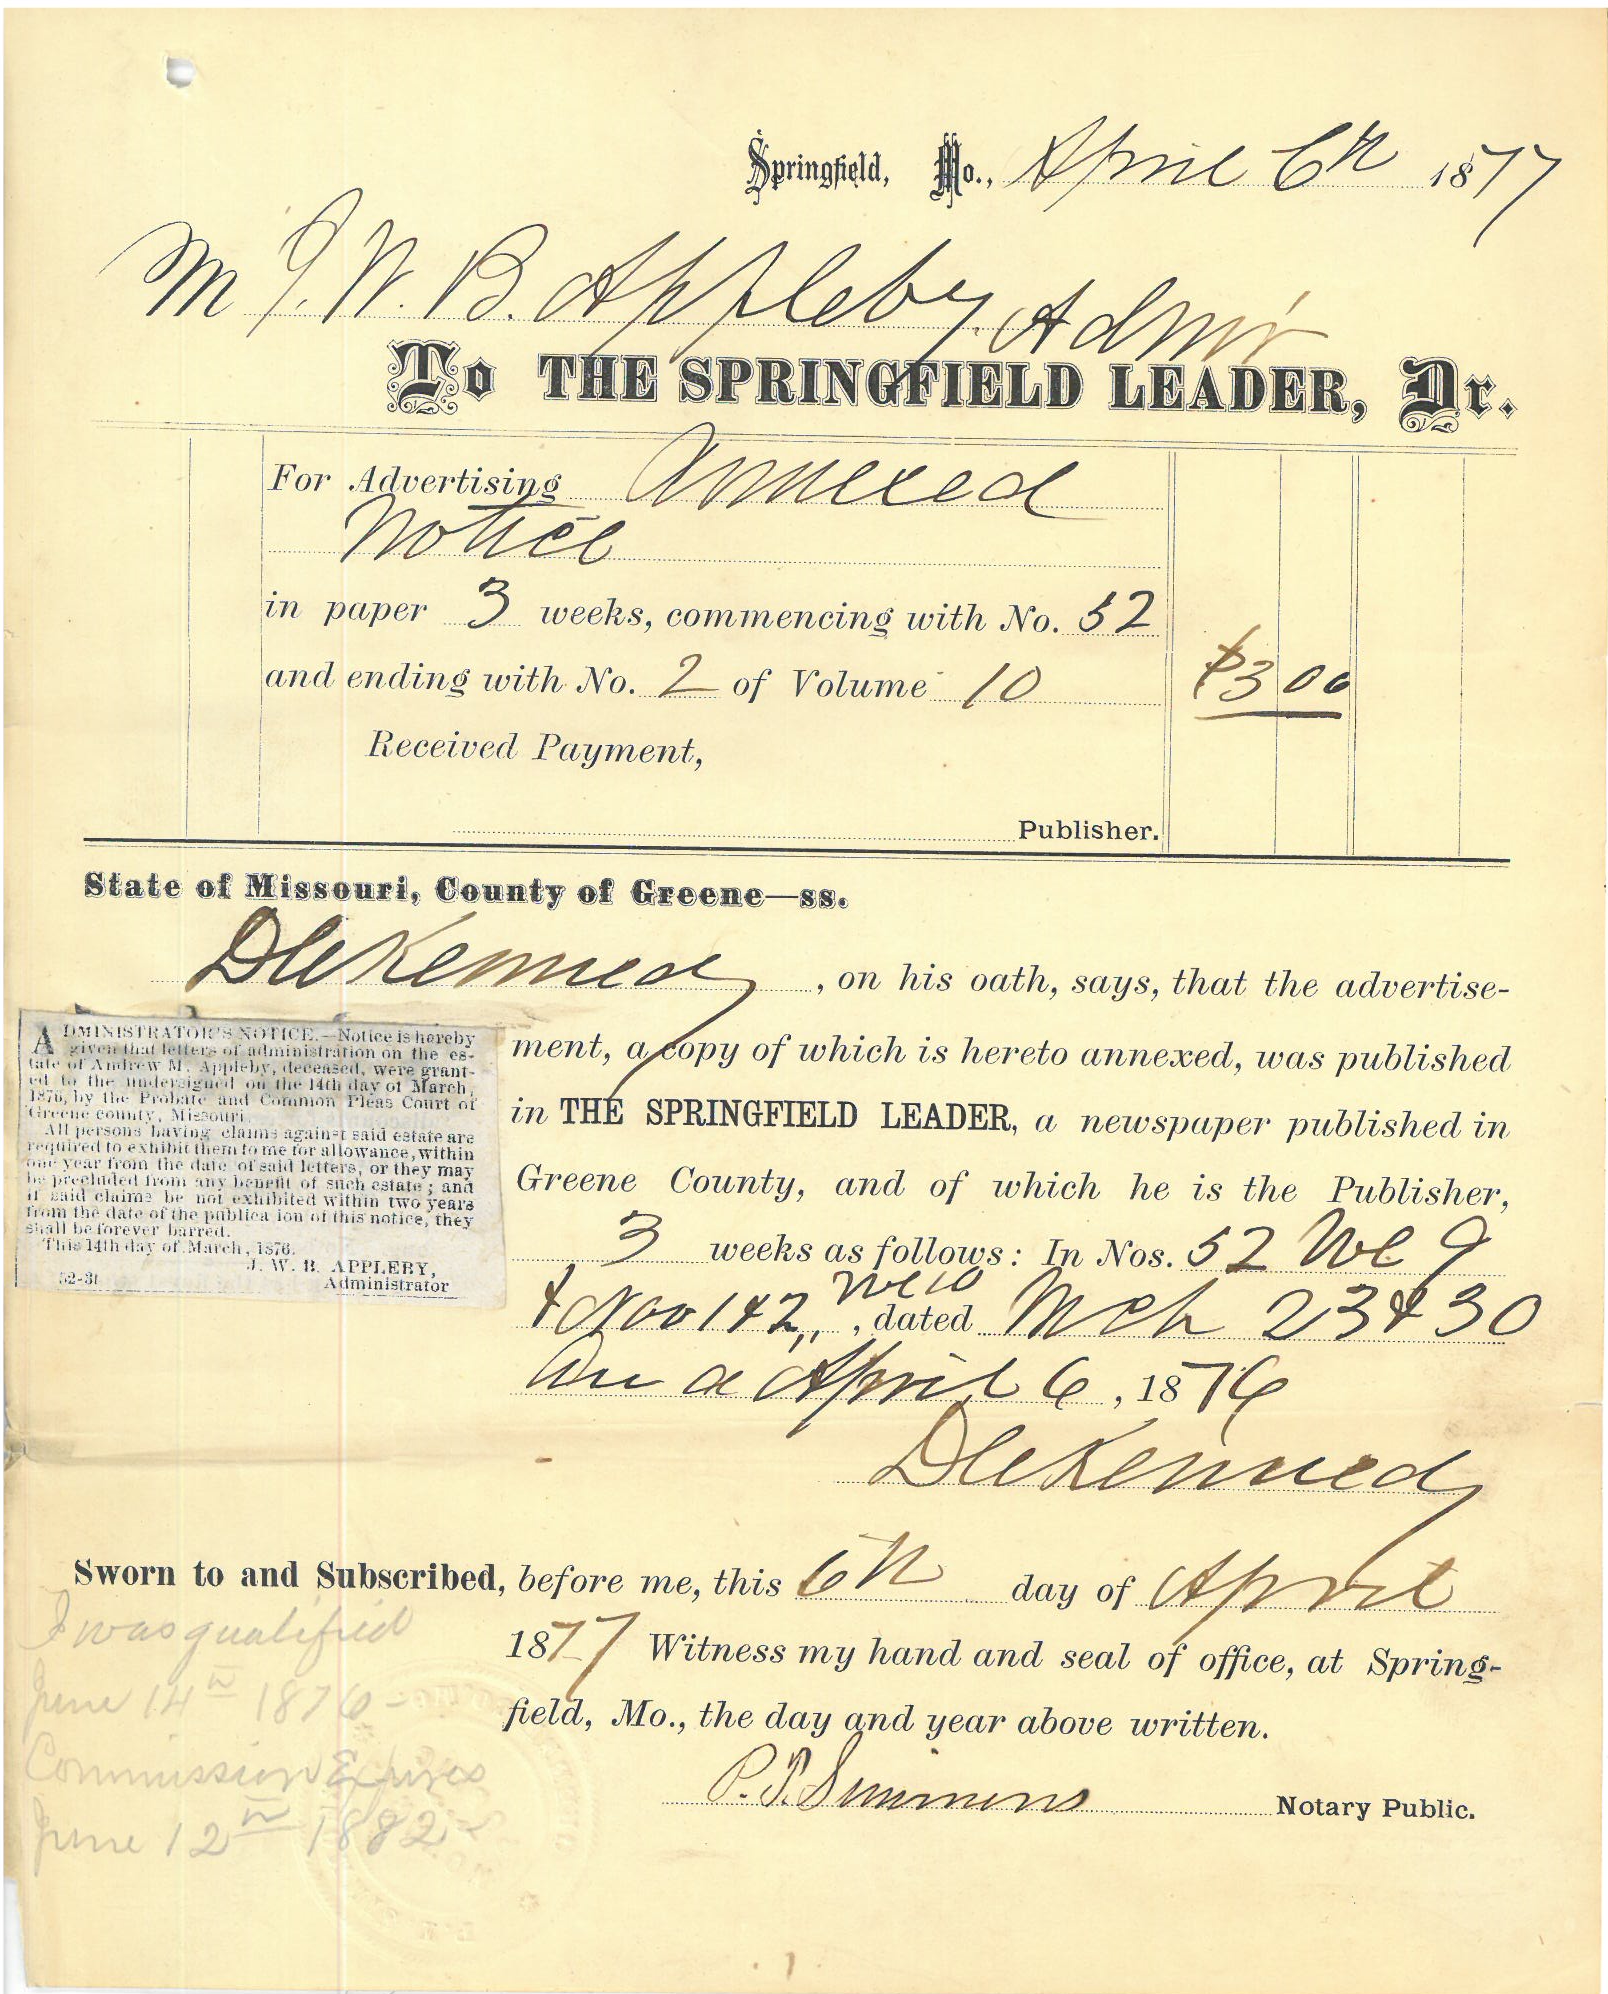 Springfield, Mo., April 6th 1877
M J. W. B. Appleby Admr
To THE SPRINGFIELD LEADER, Dr.
For Advertising Annexed
Notice
in paper 3 weeks, commencing with No. 52
and ending with No. 2 of Volume 10 $3 00
Received Payment,
Publisher.
State of Missouri, County of Greene—ss.
D C Kennedy, on his oath, says, that the advertise-
ment, a copy of which is hereto annexed, was published
in THE SPRINGFIELD LEADER, a newspaper published in
Greene County, and of which he is the Publisher,
3 weeks as follows: In Nos. 52 Vol 9
& Nos 1 & 2, Vol 10, dated Mch 23 & 30
and April 6, 1876
D C Kennedy
ADMINISTRATOR'S NOTICE.—Notice is hereby
given that letters of administration on the es-
tate of Andrew M. Appleby, deceased, were grant-
ed to the undersigned on the 14th day of March,
1876, by the Probate and Common Pleas Court of
Greene county, Missouri.
All persons having claims against said estate are
required to exhibit them to me for allowance, within
one year from the date of said letters, or they may
be precluded from any benefit of such estate; and
if said claims be not exhibited within two years
from the date of the publica ion of this notice, they
shall be forever barred.
This 14th day of March, 1876.
J. W. B. APPLEBY,
52-3t Administrator
Sworn to and Subscribed, before me, this 6th day of April
1877 Witness my hand and seal of office, at Spring-
field, Mo., the day and year above written.
P. T. Simmons Notary Public.
I was qualified
June 14th 1876-
Commission Expires
June 12th 1882-